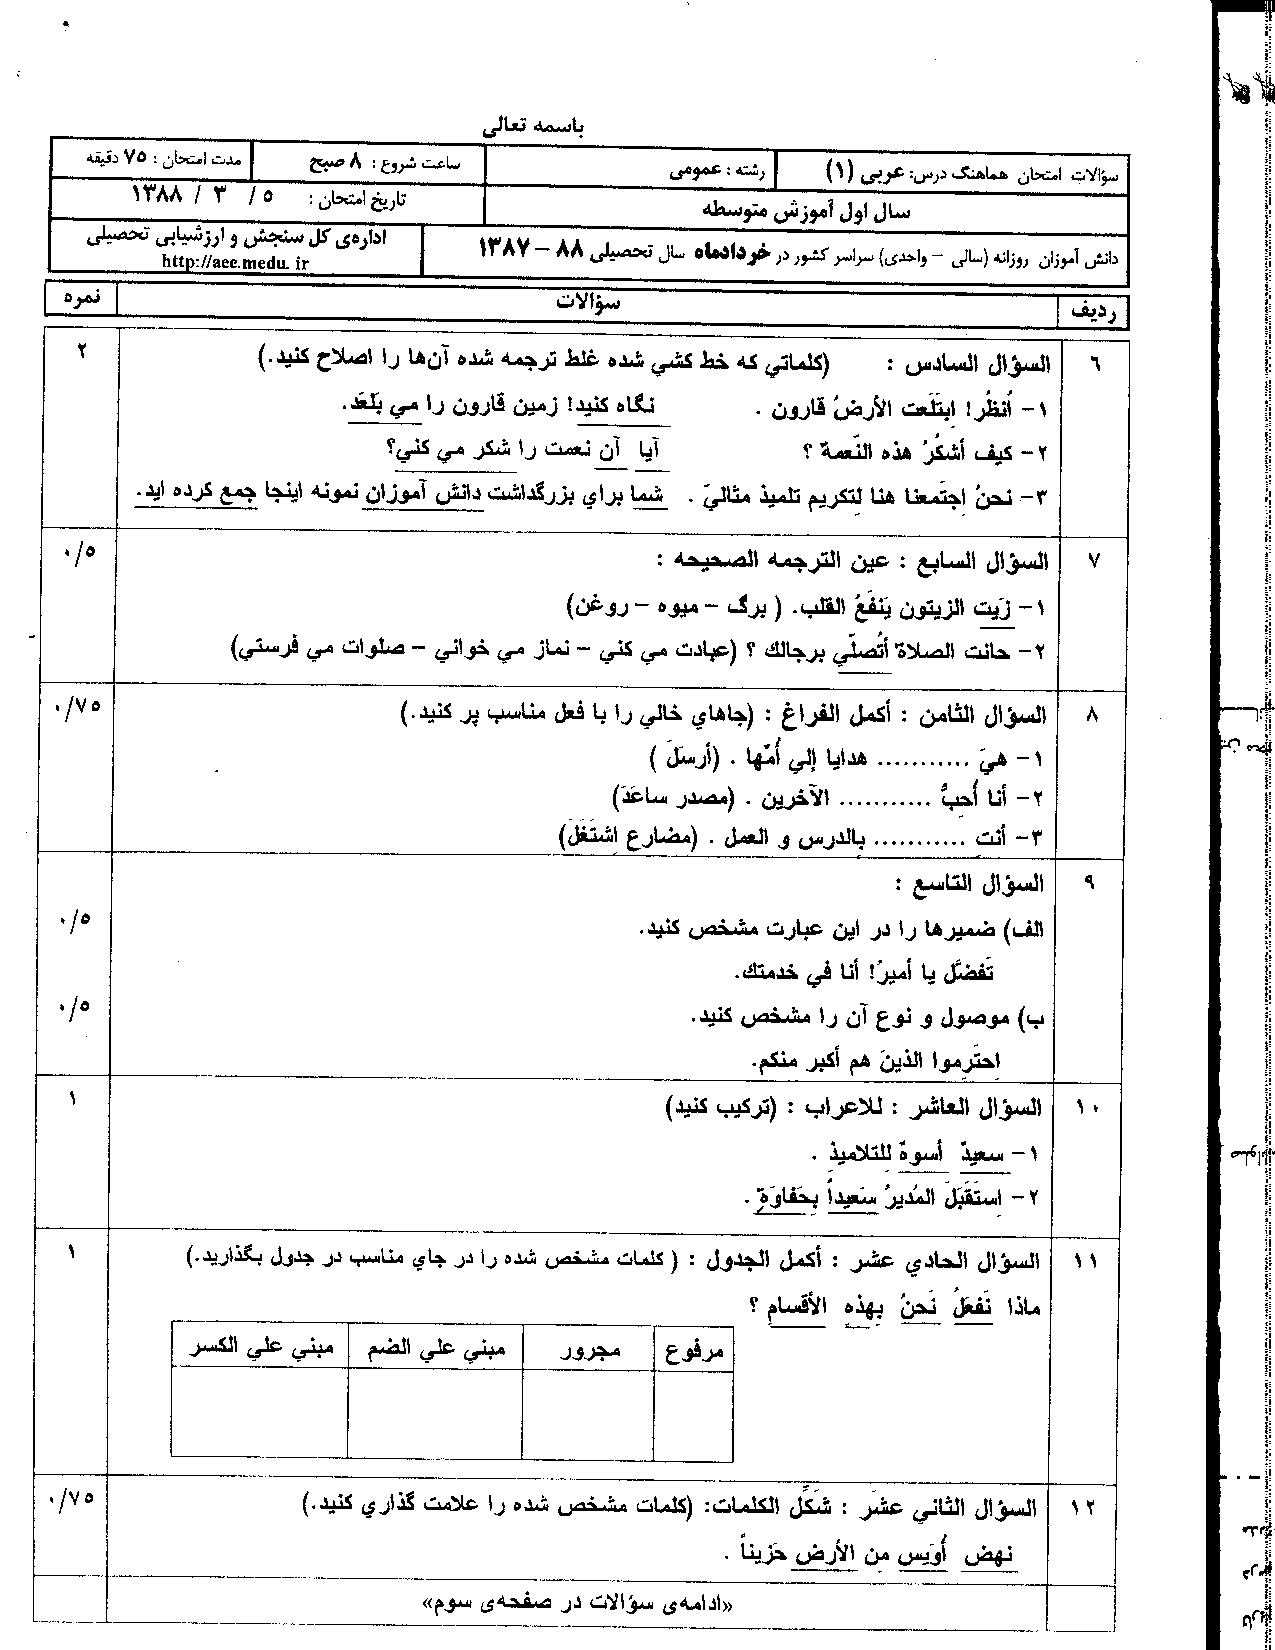 باسمه تعالی
سؤالات امتحان هماهنگ درس: عربی (۱)
رشته : عمومی
ساعت شروع : ۸ صبح
مدت امتحان : ۷۵ دقیقه
سال اول آموزش متوسطه
تاریخ امتحان : ۵ / ۳ / ۱۳۸۸
دانش آموزان روزانه (سالی - واحدی) سراسر کشور در خردادماه سال تحصیلی ۸۸ - ۱۳۸۷
اداره‌ی کل سنجش و ارزشیابی تحصیلی
http://aee.medu. ir
ردیف
سؤالات
نمره
۶
السؤال السادس : (کلماتي که خط کشي شده غلط ترجمه شده آن‌ها را اصلاح کنید.)
۲
۱- اُنظُر! ابتَلَعت الأرضُ قارون . نگاه کنید! زمین قارون را مي بلعَد.
۲- کیف أشکُرُ هذه النَّعمة ؟ آیا آن نعمت را شکر مي کني؟
۳- نحنُ اجتَمعنا هنا لتکریم تلمیذ مثاليّ . شما براي بزرگداشت دانش آموزان نمونه اینجا جمع کرده اید.
۷
السؤال السابع : عین الترجمه الصحیحه :
۰/۵
۱- زَیت الزیتون یَنفَعُ القلب. ( برگ - میوه - روغن)
۲- حانت الصلاة أتُصلّي برجالك ؟ (عبادت مي کني - نماز مي خواني - صلوات مي فرستي)
۸
السؤال الثامن : أکمل الفراغ : (جاهاي خالي را با فعل مناسب پر کنید.)
۰/۷۵
۱- هيَ ........... هدایا إلي أُمّها . (أرسَلَ )
۲- أنا أُحبُّ ........... الآخرین . (مصدر ساعَدَ)
۳- أنت ........... بالدرس و العمل . (مضارع اشتَغَلَ)
۹
السؤال التاسع :
الف) ضمیرها را در این عبارت مشخص کنید.
۰/۵
تَفَضَّل یا أمیرُ! أنا في خدمتك.
ب) موصول و نوع آن را مشخص کنید.
۰/۵
احتَرموا الذینَ هم أکبر منکم.
۱۰
السؤال العاشر : للاعراب : (ترکیب کنید)
۱
۱- سعیدٌ أسوةٌ للتلامیذ .
۲- استَقبَلَ المُدیرُ سَعیداً بِحَفاوَةٍ .
۱۱
السؤال الحادي عشر : أکمل الجدول : ( کلمات مشخص شده را در جاي مناسب در جدول بگذارید.)
۱
ماذا نَفعَلُ نَحنُ بِهذه الأقسام ؟
مرفوع
مجرور
مبني علي الضم
مبني علي الکسر
۱۲
السؤال الثاني عشَر : شَکِّلِ الکلمات: (کلمات مشخص شده را علامت گذاري کنید.)
۰/۷۵
نهض أُوَیس من الأرض حَزیناً .
«ادامه‌ی سؤالات در صفحه‌ی سوم»